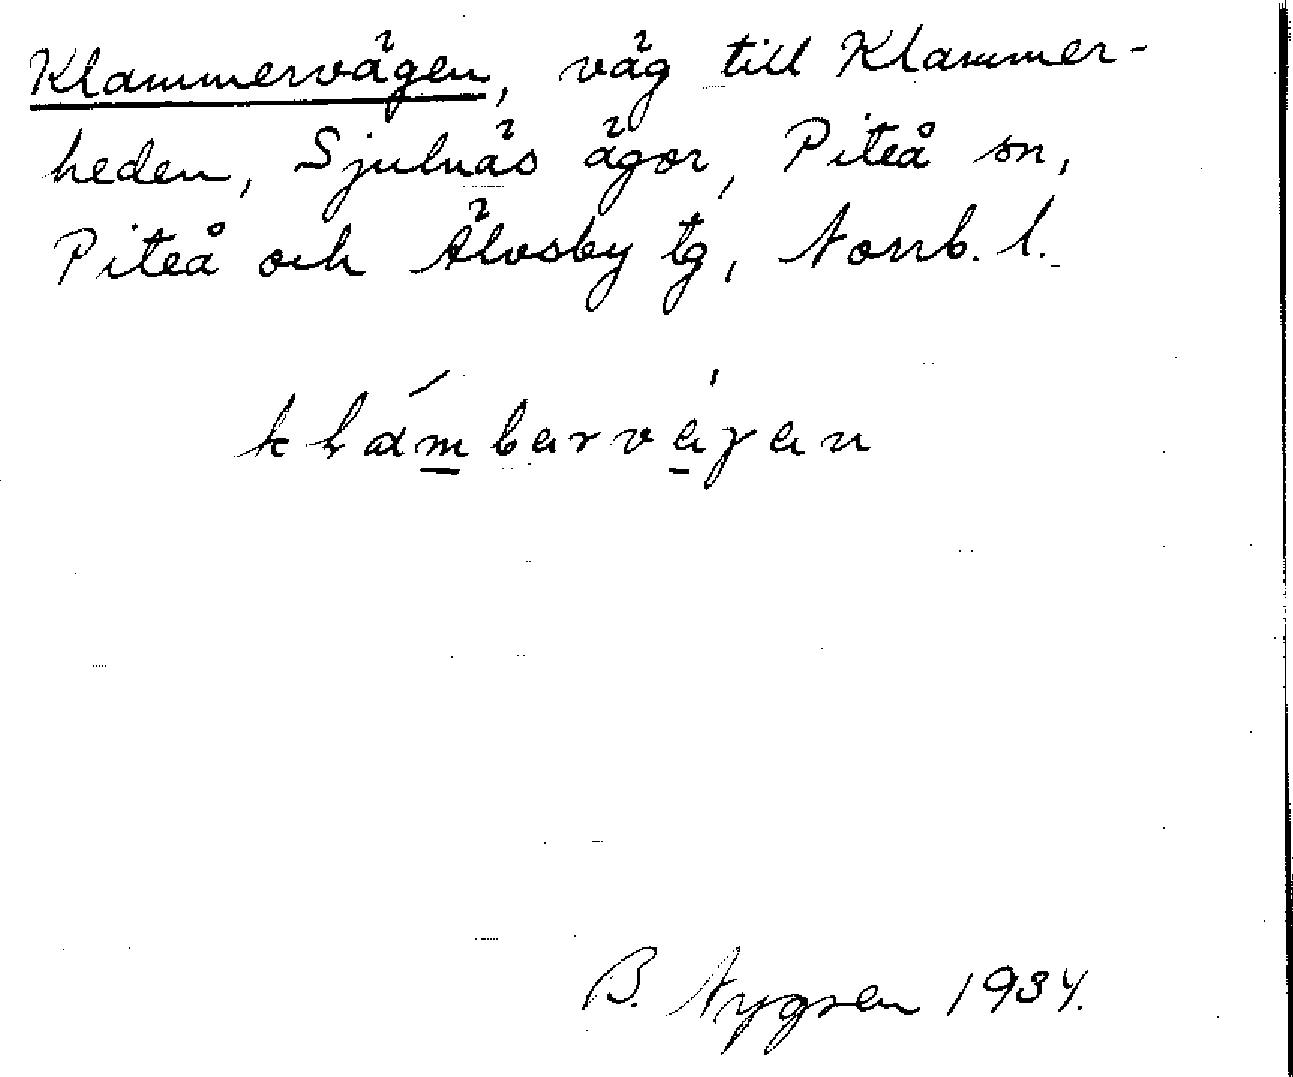 Klammervägen, väg till Klammer-
heden, Sjulnäs ägor, Piteå sn,
Piteå och Älvsby tg, Norrb. l.
klámbarvàgan
B. Nygren 1934.